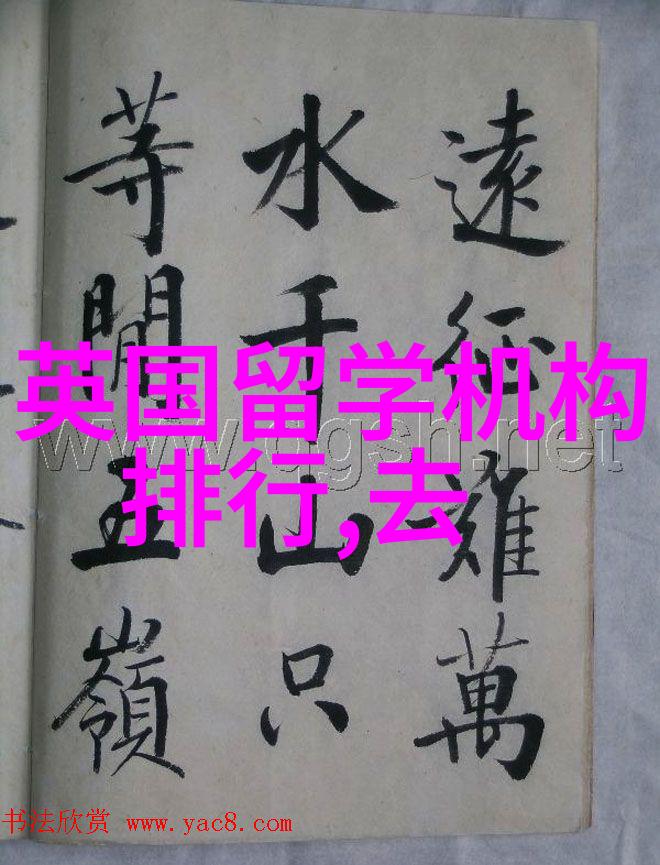 遠征難萬
水千山只
等閒五嶺
英国留学机构
排行,去
书法欣赏 www.yac8.com